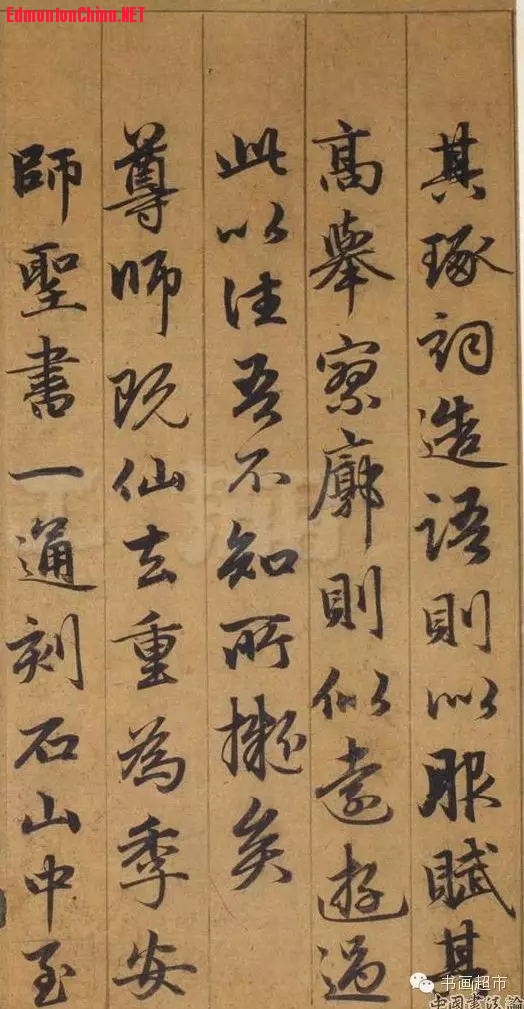 EdmontonChina.NET
其琢詞造語則以服賦其
高舉寥廓則似遠遊過
此以往吾不知所擬矣
尊師既仙去重為季安
師聖書一通刻石山中至
书画超市
中國書法論